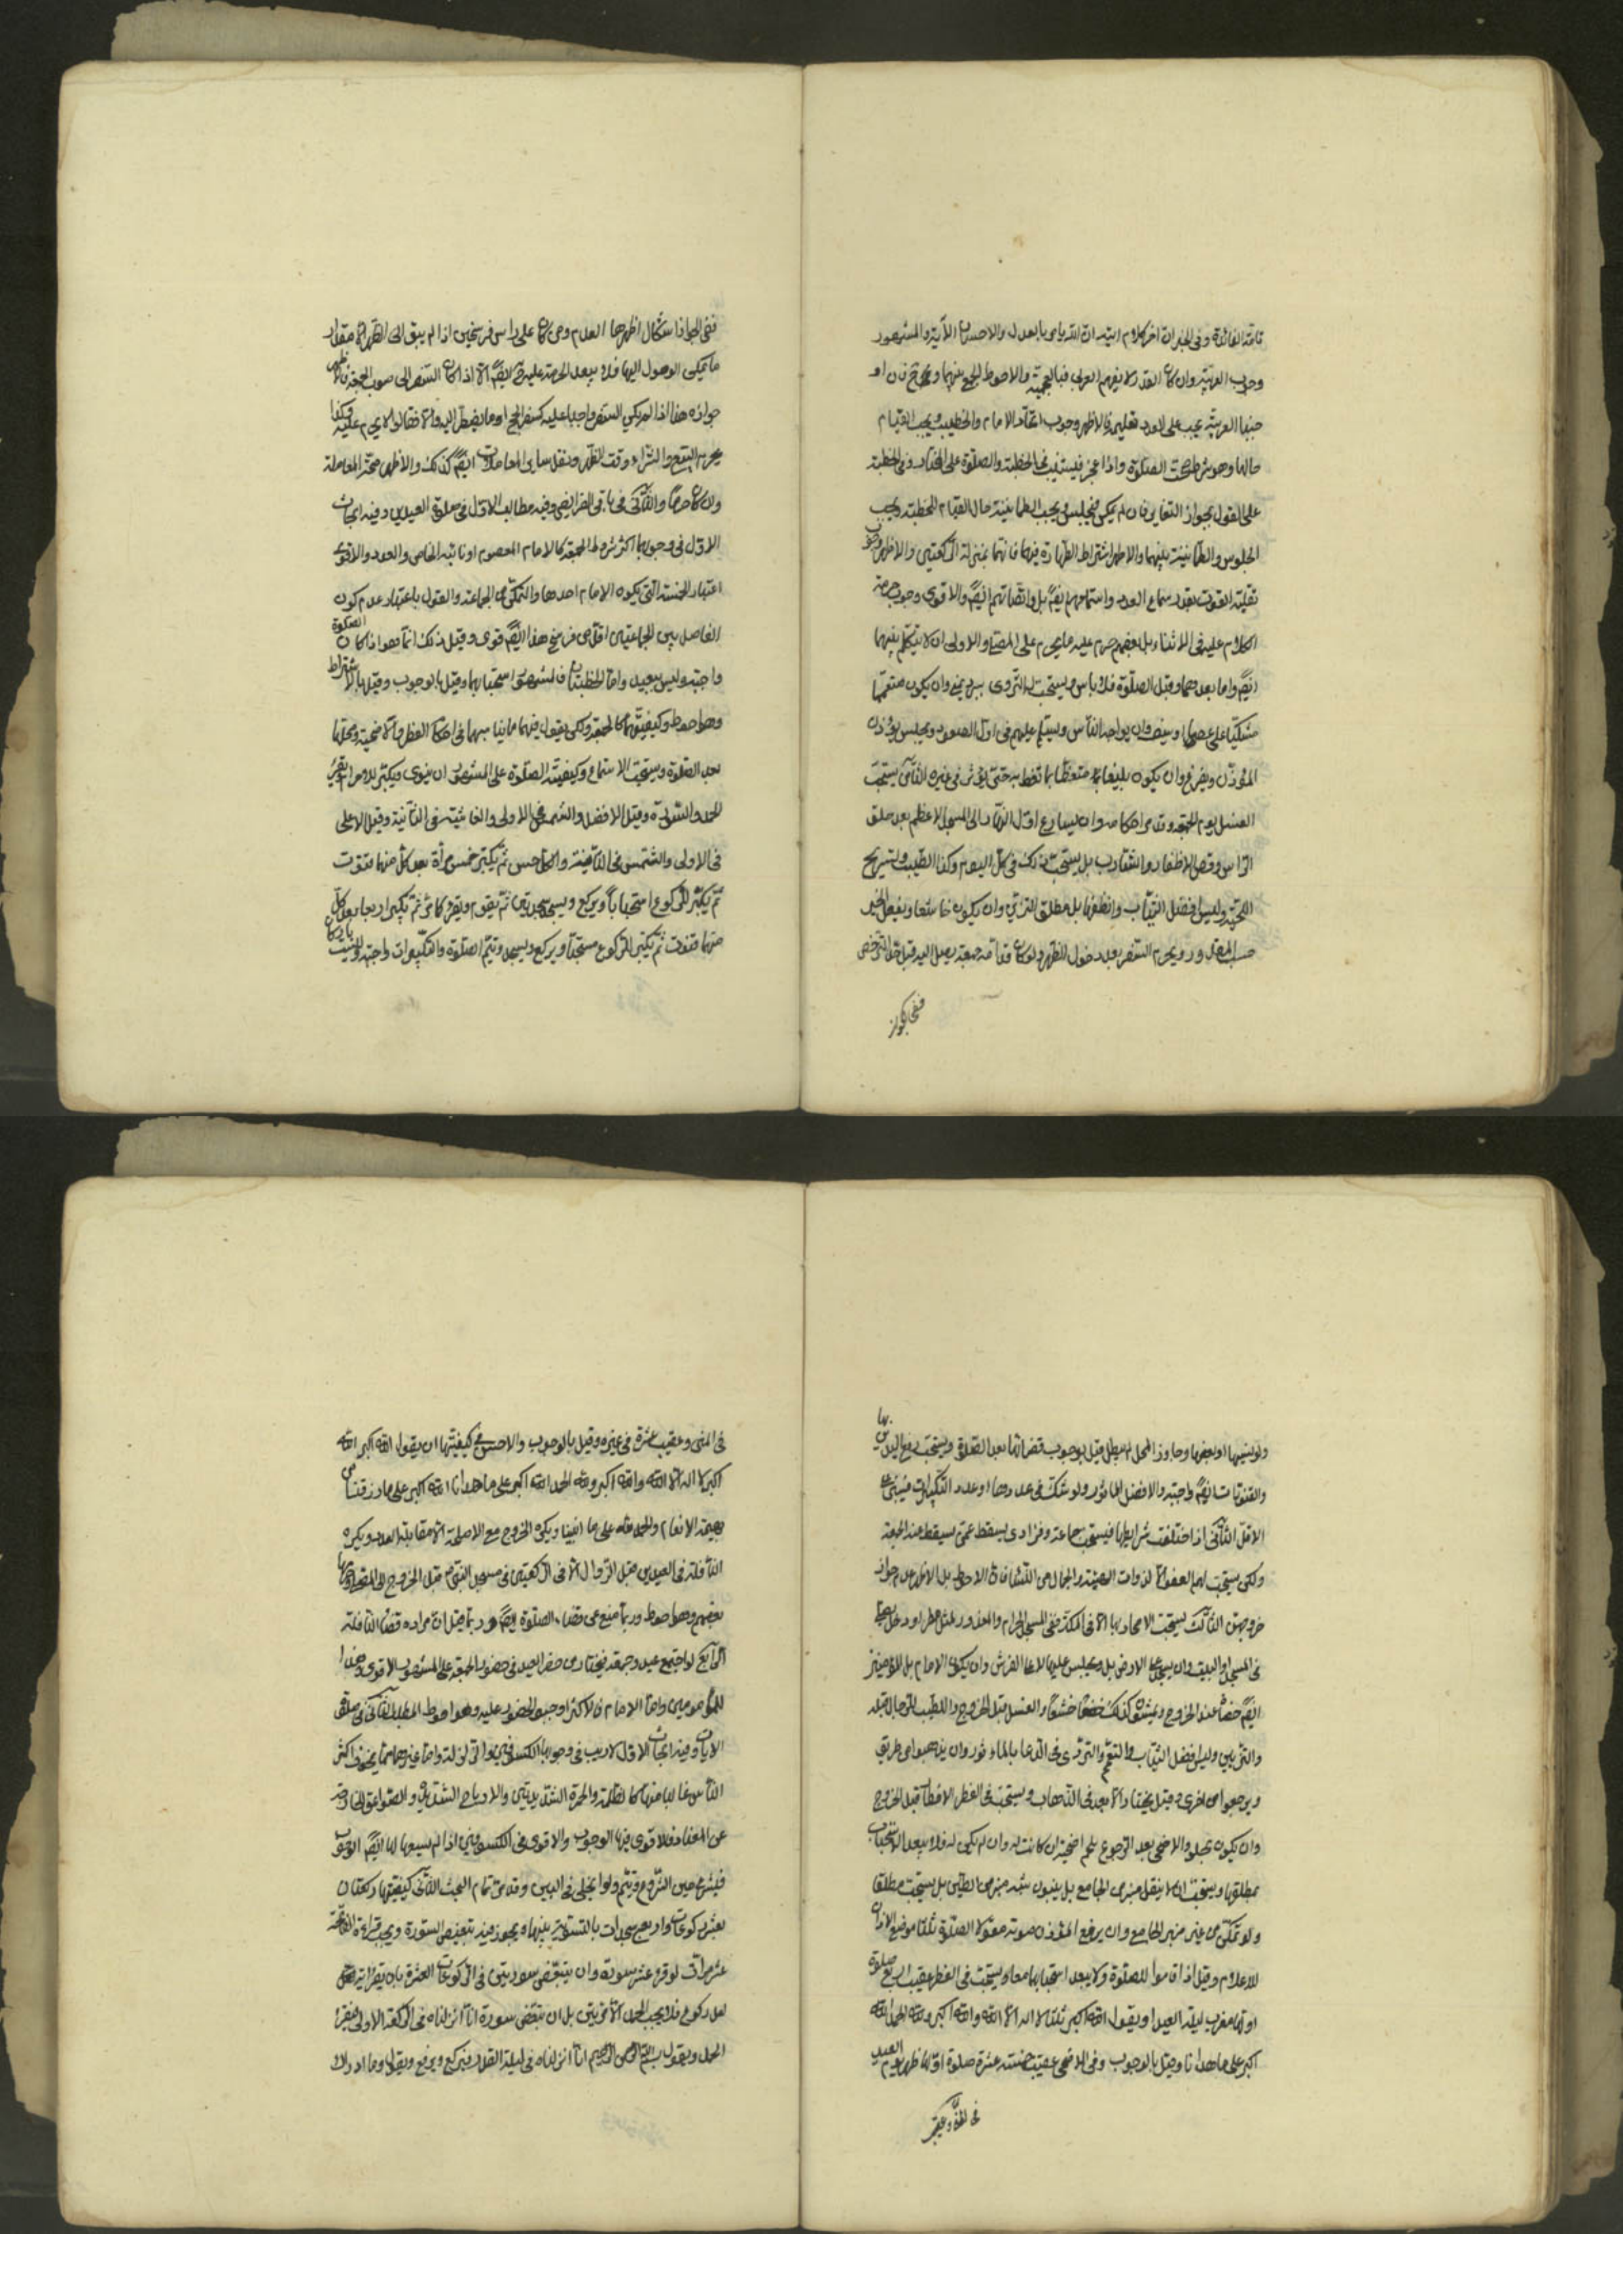 تامة الفائدة وفى الخبر ان اخر كلام ابيه ان الله يامر بالعدل والاحسان الآية والمشهور
وجوب العربية وان كان العدد لا يفهم العربى فبالعجمية والاحوط الجمع بينهما ومع
العربية يجب على العدد تعليمه والاظهر وجوب اتحاد الامام والخطيب ويجب القيام
حالها وهو شرط صحت الصلوة واذا عجز فيستنيب فى الخطبة والصلوة على المختار وفى الخطبة
على القول بجواز التغاير فان لم يمكن فيجلس ويجب الطمانينة حال القيام للخطبة ويجب
الجلوس والطمانينة بينهما والاظهر اشتراط الطهارة فيهما فانهما بمنزلة الركعتين والاظهر وجوب
الصوت بقدر سماع العدد واستماعهم ايضً بل وانصاتهم ايضً والاقوى وجوب حرمة
الكلام عليه فى الاثناء بل بعضهم حرم عليه ما يحرم على المصلى والاولى ان لا يتكلم بينهما
ايضً واما بعدهما وقبل الصلوة فلا باس ويستحب له التردى ببرد يمنى وان يكون متعمما
متكئا على عصا او سيف وان يواجه الناس ويسلم عليهم فى اول الصعود ويجلس يؤذن
المؤذن ويفرغ وان يكون بليغا متعظا بما تعظ به حتى يؤثر فى غيره الثامن يستحب
الغسل يوم الجمعة وقد مر احكامه وان يسارع اول النهار الى المسجد الاعظم بعد حلق
الراس وقص الاظفار والشارب بل يستحب ذلك فى كل اليوم وكذا الطيب وتسريح
اللحية وليس افضل الثياب وانظفها بل مطلق التزين وان يكون خاشعا ويفعل الخير
حسب المقدور ويحرم السفر بعد دخول الظهر ولو كان قدامه جمعة يصل اليه قبل
ففى الجواز
ففى الجواز اشكال اظهرها العدم ومن كان على راس فرسخين اذا لم يبق الى الظهر الا مقدار
ما يمكن الوصول اليها فلا يبعد الحرمة عليه ايضً الا اذا كان السفر الى صوب الجمعة فالاظهر
جوازه هذا اذا لم يكن السفر واجبا عليه كسفر الحج او ما يضطر اليه والا فقالوا لا يحرم عليه وكذا
يحرم البيع والشراء وقت الظهر ونقل ساير المعاملات ايضً كذلك والاظهر صحة المعاملة
وان كان حراما والثانى فى باقى الفرايض وفيه مطالب الاول فى صلوة العيدين وفيه ابحاث
الاول فى وجوبها اكثر شروط الجمعة كالامام المعصوم او نائبه الخاص والعدد والاقوى
اعتبار الخمسة التى يكون الامام احدها والتمكن من الجماعة والقول باعتبار عدم كون
الفاصل بين الجماعتين اقل من فرسخ هنا ايضً قوى وقيل ذلك انما هو اذا كان الصلوة
واجبة وليس ببعيد واما الخطبتان فالمشهور استحبابها وقيل بالوجوب وقيل بالاشتراط
وهو احوط وكيفيتهما كالجمعة ولكن يقول فيهما ما يناسبهما فى احكام الفطرة والاضحية ومحلهما
بعد الصلوة ويستحب الاستماع وكيفية الصلوة على المشهور ان ينوى ويكبر للاحرام ثم يقرء
الحمد والسورة وقيل الافضل والشمس فى الاولى والغاشية فى الثانية وقيل الاعلى
فى الاولى والشمس فى الثانية والكل حسن ثم يكبر خمس مراة بعد كل منها قنوت
ثم يكبر للركوع استحبابا ويركع ويسجد سجدتين ثم يقوم ويقرء كما مر ثم يكبر اربعا بعد كل
منها قنوت ثم يكبر للركوع مستحبا ويركع ويسجد ويتم الصلوة والتكبيرات واجبة وليست
ولو نسيها او بعضها وجاوز المحل لم يبطل قيل بوجوب قضائها بعد الصلوة ويستحب رفع اليدين بها
والقنوتات ايضً واجبة والافضل الماثور ولو شك فى عددها او عدد التكبيرات فيبنى على
الاقل الثانى اذا اختلفت شرايطها فيستحب جماعة وفرادى يسقط عمن يسقط عنه الجمعة
ولكن يستحب لهم الا لذوات الهيئة والجمال من النساء فان الاحوط بل الاظهر عدم جواز
خروجهن الثالث يستحب الاصحار بها الا فى المكة ففى المسجد الحرام والمعذور لمثل مطر او وحل
فى المسجد او البيت وان يسجد على الارض بل ويجلس عليها لا على الفرش وان يكون الامام بل المؤمنين
ايضً عند الخروج ويمشون كذلك والغسل قبل الخروج والطيب للرجال قبله
والتزين ولبس افضل الثياب والتعمم والتردى فى الدعا بالماثور وان يذهبوا من طريق
ويرجعوا من اخرى وقيل يختار الابعد فى الذهاب ويستحب فى الفطر الافطار قبل الخروج
وان يكون بحلو والاضحى بعد الرجوع بلحم اضحيته ان كانت له وان لم يكن له فلا يبعد الاستحباب
بمطلقها ويستحب ان لا ينقل منبر من الجامع بل يبنون شبه منبر من الطين بل يستحب مطلقا
ولو تمكن من غير منبر الجامع وان يرفع المؤذن صوته مقولا الصلوة ثلثا موضع الاذان
للاعلام وقيل اذا قاموا للصلوة ولا يبعد استحبابهما معا ويستحب فى الفطر عقيب اربع صلوة
اولها مغرب ليلة العيد ويقول الله اكبر ثلثا لا اله الا الله والله اكبر ولله الحمد الله
اكبر على ما هدانا وقيل بالوجوب وفى الاضحى عقيب خمسة عشرة صلوة اولها ظهر يوم العيد
فى المنى وعقيب
فى المنى وعقيب عشرة فى غيره وقيل بالوجوب والاحسن فى كيفيتها ان يقول الله اكبر الله
اكبر لا اله الا الله والله اكبر ولله الحمد الله اكبر على ما هدانا الله اكبر على ما رزقنا من
بهيمة الانعام والحمد لله على ما ابلينا ويكره الخروج مع الاسلحة الا مقابلة العدو ويكره
النافلة فى العيدين قبل الزوال الا فى الركعتين فى مسجد النبى ص قبل الخروج الى المصلى
بعضهم وهو احوط وربما منع عن قضاء الصلوة ايضً وربما قيل ان مراده قضاء النافلة
الرابع لو اجتمع عيد وجمعة فيختار من حضر العيد فى حضور الجمعة على المشهور الاقوى وهذا
للمامومين واما الامام فالاكثر اوجبوا الحضور عليه وهو احوط المطلب الثانى فى صلوة
الايات وفيه ابحاث الاول لا ريب فى وجوبها لكسوفين والزلزلة واما غيرهما مما يخوف اكثر
الناس غالبا منها كالظلمة والحمرة الشديدتين والارياح الشديدة والصواعق الخارجة
عن المعتاد فالاقوى فيها الوجوب والاقوى فى الكسوفين اذا لم يسعها لها ايضً الوجوب
فيشرع حين الشروع ويتم ولو انجلى فى البين وقد مر تمام البحث الثانى كيفيتها ركعتان
بعشر ركوعات واربع سجدات بالتسوية بينهما ويجوز فيه تبعيض السورة ويجب قراءة الفاتحة
عشر مرات لو قرء عشر سورة وان يتبعض سورتين فى الركوعات العشرة بان يقرء اية
بعد ركوع فلا يجب الحمد الا مرتين بل ان يبعض سورة انا انزلناه فى الركعة الاولى فيقرء
الحمد ويقول بسم الله الرحمن الرحيم انا انزلناه فى ليلة القدر فيركع ويرفع ويقول وما ادراك